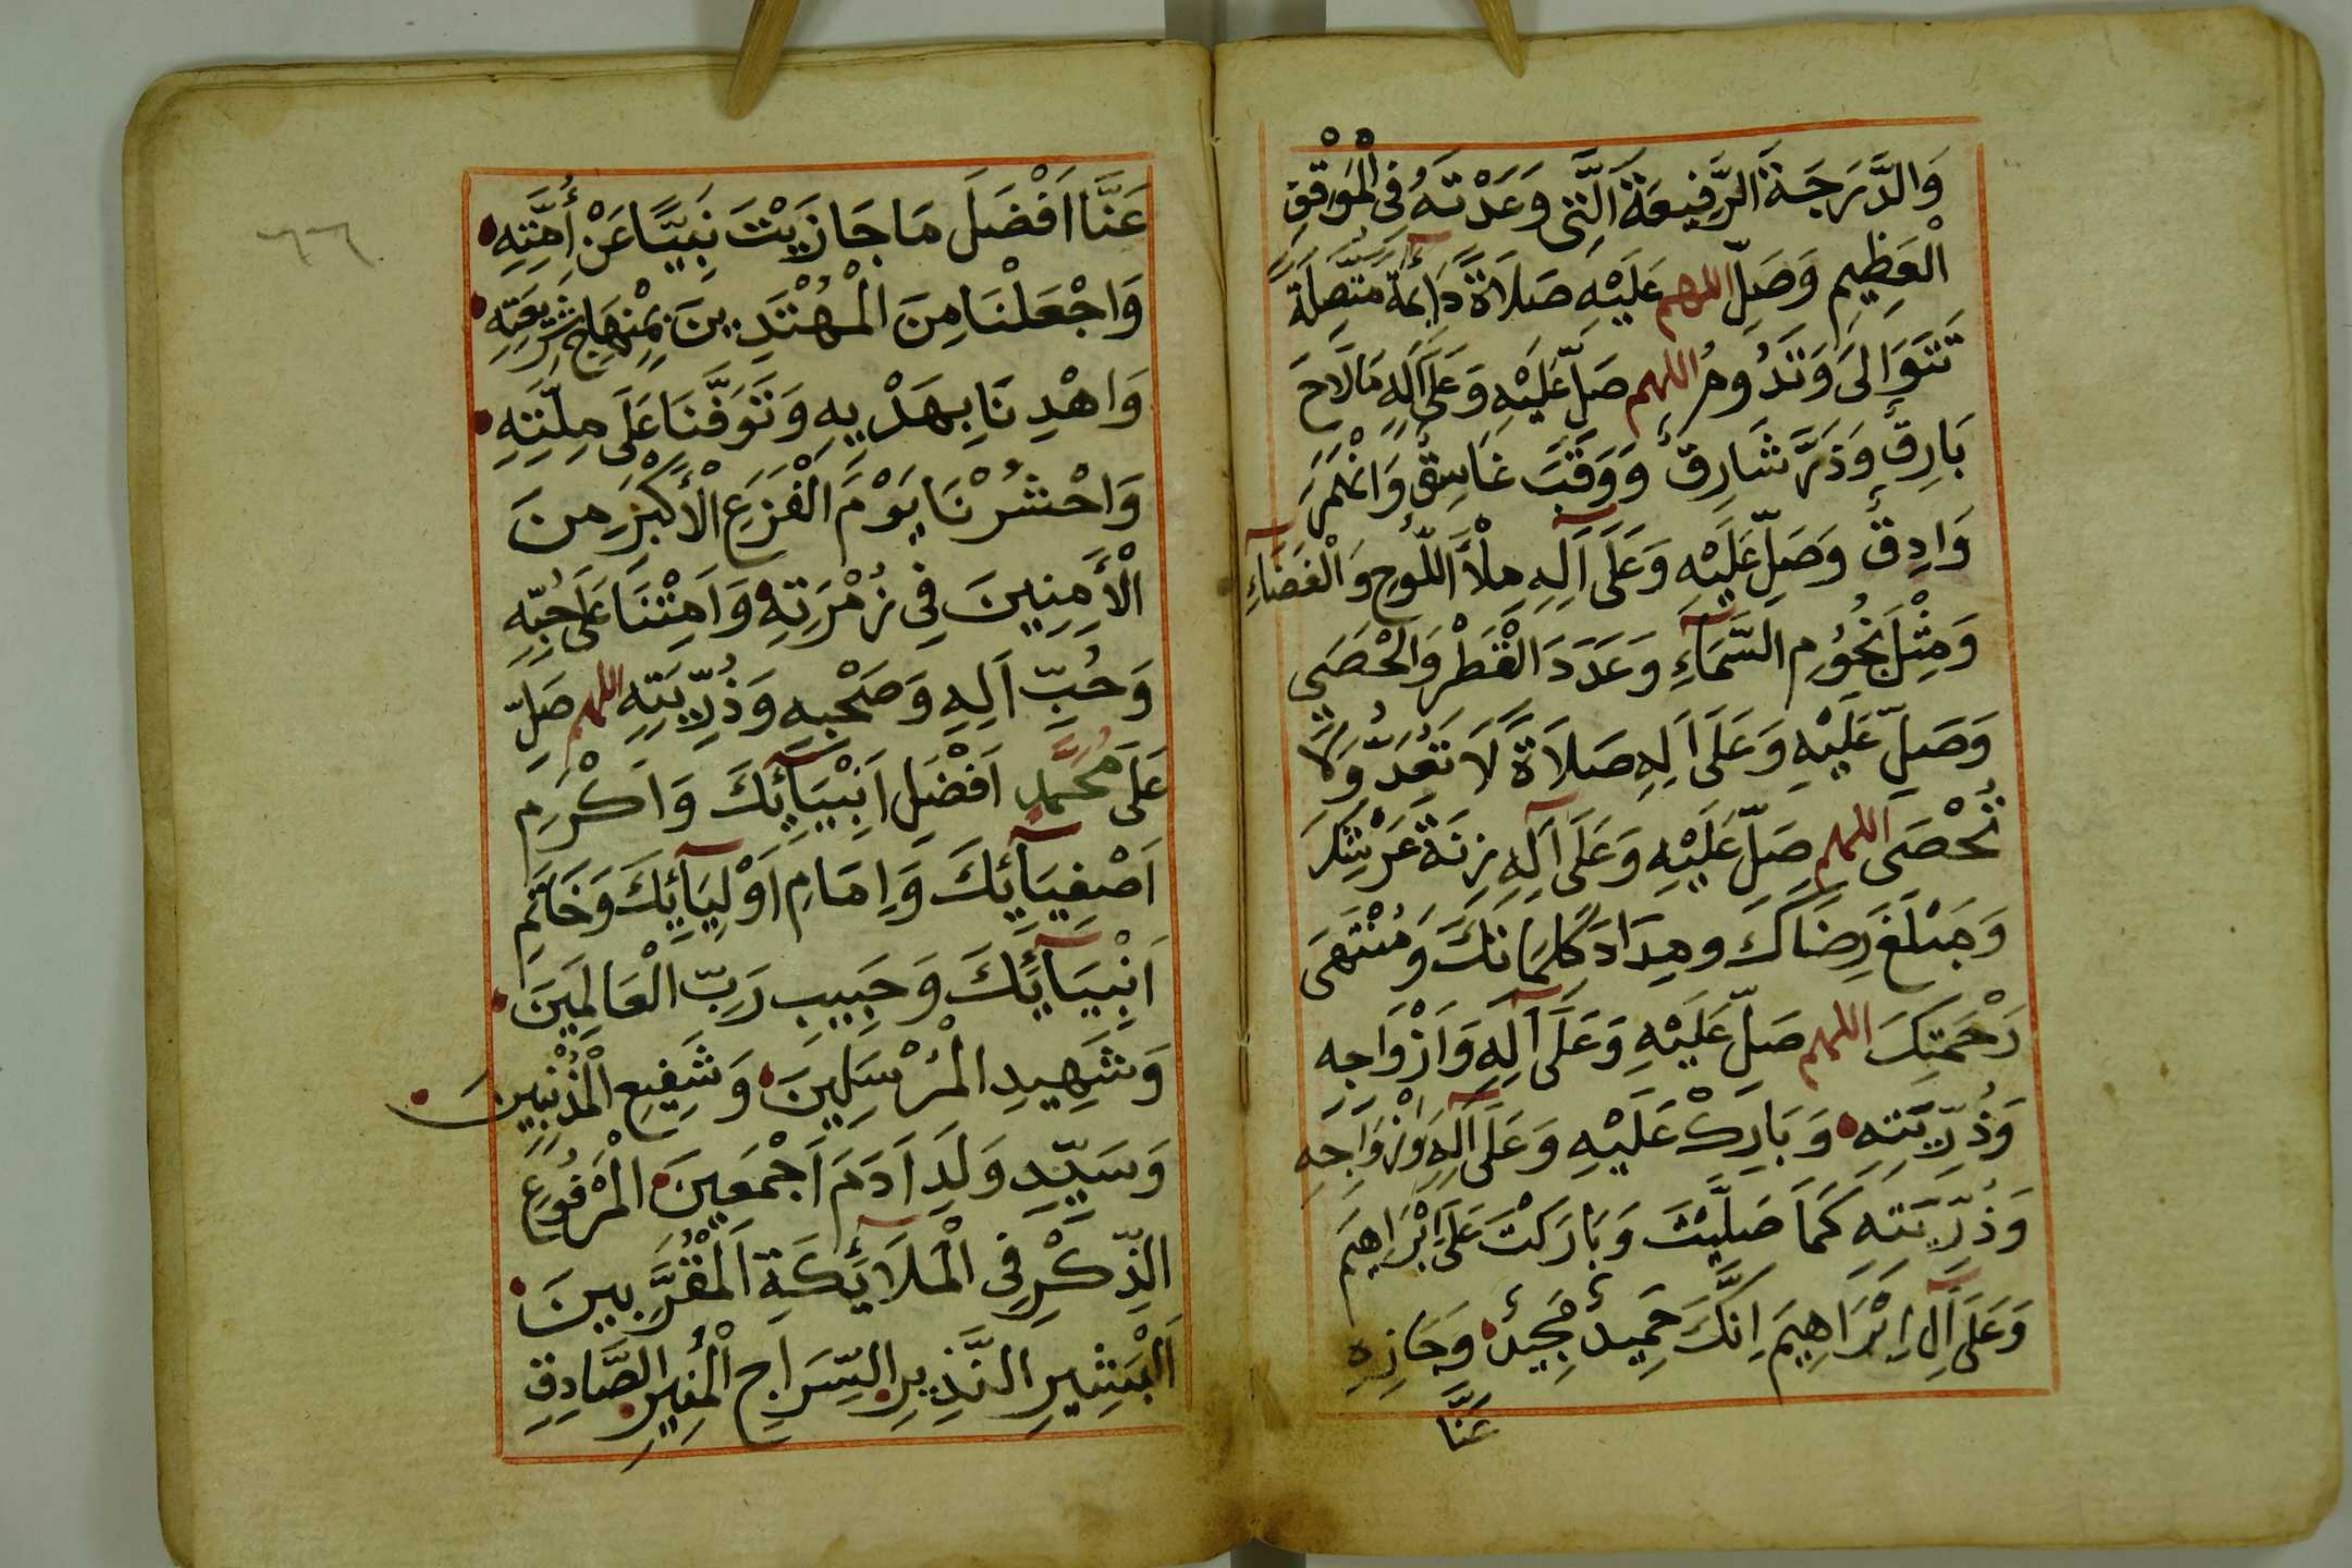 وَالدَّرَجَةَ الرَّفِيعَةَ الَّتِى وَعَدْتَهُ فِى الْمَوْقِفِ
الْعَظِيمِ وَصَلِّ اللهم عَلَيْهِ صَلَاةً دَائِمَةً مُتَّصِلَةً
تَتَوَالَى وَتَدُومُ اللهم صَلِّ عَلَيْهِ وَعَلَى آلِهِ مَالَاحَ
بَارِقٌ وَذَرَّ شَارِقٌ وَوَقَبَ غَاسِقٌ وَانْهَمَرَ
وَادِقٌ وَصَلِّ عَلَيْهِ وَعَلَى آلِهِ مِلْأَ اللَّوْحِ وَالْفَضَآءِ
وَمِثْلَ نُجُومِ السَّمَآءِ وَعَدَدَ الْقَطْرِ وَالْحَصَى
وَصَلِّ عَلَيْهِ وَعَلَى آلِهِ صَلَاةً لَا تُعَدُّ وَلَا
تُحْصَى اللهم صَلِّ عَلَيْهِ وَعَلَى آلِهِ زِنَةَ عَرْشِكَ
وَمَبْلَغَ رِضَاكَ ومِدَادَ كَلِمَاتِكَ وَمُنْتَهَى
رَحْمَتِكَ اللهم صَلِّ عَلَيْهِ وَعَلَى آلِهِ وَاَزْوَاجِهِ
وَذُرِّيَّتِهِ وَبَارِكْ عَلَيْهِ وَعَلَى آلِهِ وَازْوَاجِهِ
وَذُرِّيَّتِهِ كَمَا صَلَّيْتَ وَبَارَكْتَ عَلَى اِبْرَاهِيمَ
وَعَلَى آلِ اِبْرَاهِيمَ اِنَّكَ حَمِيدٌ مَجِيدٌ وَجَازِهِ
عَنَّا
٦٦
عَنَّا اَفْضَلَ مَا جَازَيْتَ نَبِيًّا عَنْ أُمَّتِهِ
وَاجْعَلْنَا مِنَ الْمُهْتَدِينَ بِمِنْهَاجِ شَرِيعَتِهِ
وَاهْدِنَا بِهَدْيِهِ وَتَوَفَّنَا عَلَى مِلَّتِهِ
وَاحْشُرْنَا يَوْمَ الْفَزَعِ الْأَكْبَرِ مِنَ
الْأَمِنِينَ فِى زُمْرَتِهِ وَاَمِتْنَا عَلَى حُبِّهِ
وَحُبِّ اَلِهِ وَصَحْبِهِ وَذُرِّيَّتِهِ اللهم صَلِّ
عَلَى مُحَمَّدٍ اَفْضَلِ اَنْبِيَآئِكَ وَاَكْرَمِ
اَصْفِيَآئِكَ وَاِمَامِ اَوْلِيَآئِكَ وَخَاتَمِ
اَنْبِيَآئِكَ وَحَبِيبِ رَبِّ الْعَالَمِينَ
وَشَهِيدِ الْمُرْسَلِينَ وَشَفِيعِ الْمُذْنِبِينَ
وَسَيِّدِ وَلَدِ اَدَمَ اَجْمَعِينَ الْمَرْفُوعِ
الذِّكْرِ فِى الْمَلَآئِكَةِ الْمُقَرَّبِينَ
اَلْبَشِيرِ النَّذِيرِ السِّرَاجِ الْمُنِيرِ الصَّادِقِ